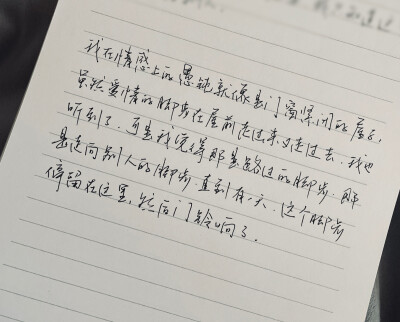 我在情感上的愚钝就像是门窗紧闭的屋子,
虽然爱情的脚步在屋前走过来又走过去,我也
听到了,可是我觉得那是路过的脚步,那
是走向别人的脚步.直到有一天,这个脚步
停留在这里,然后门铃响了.